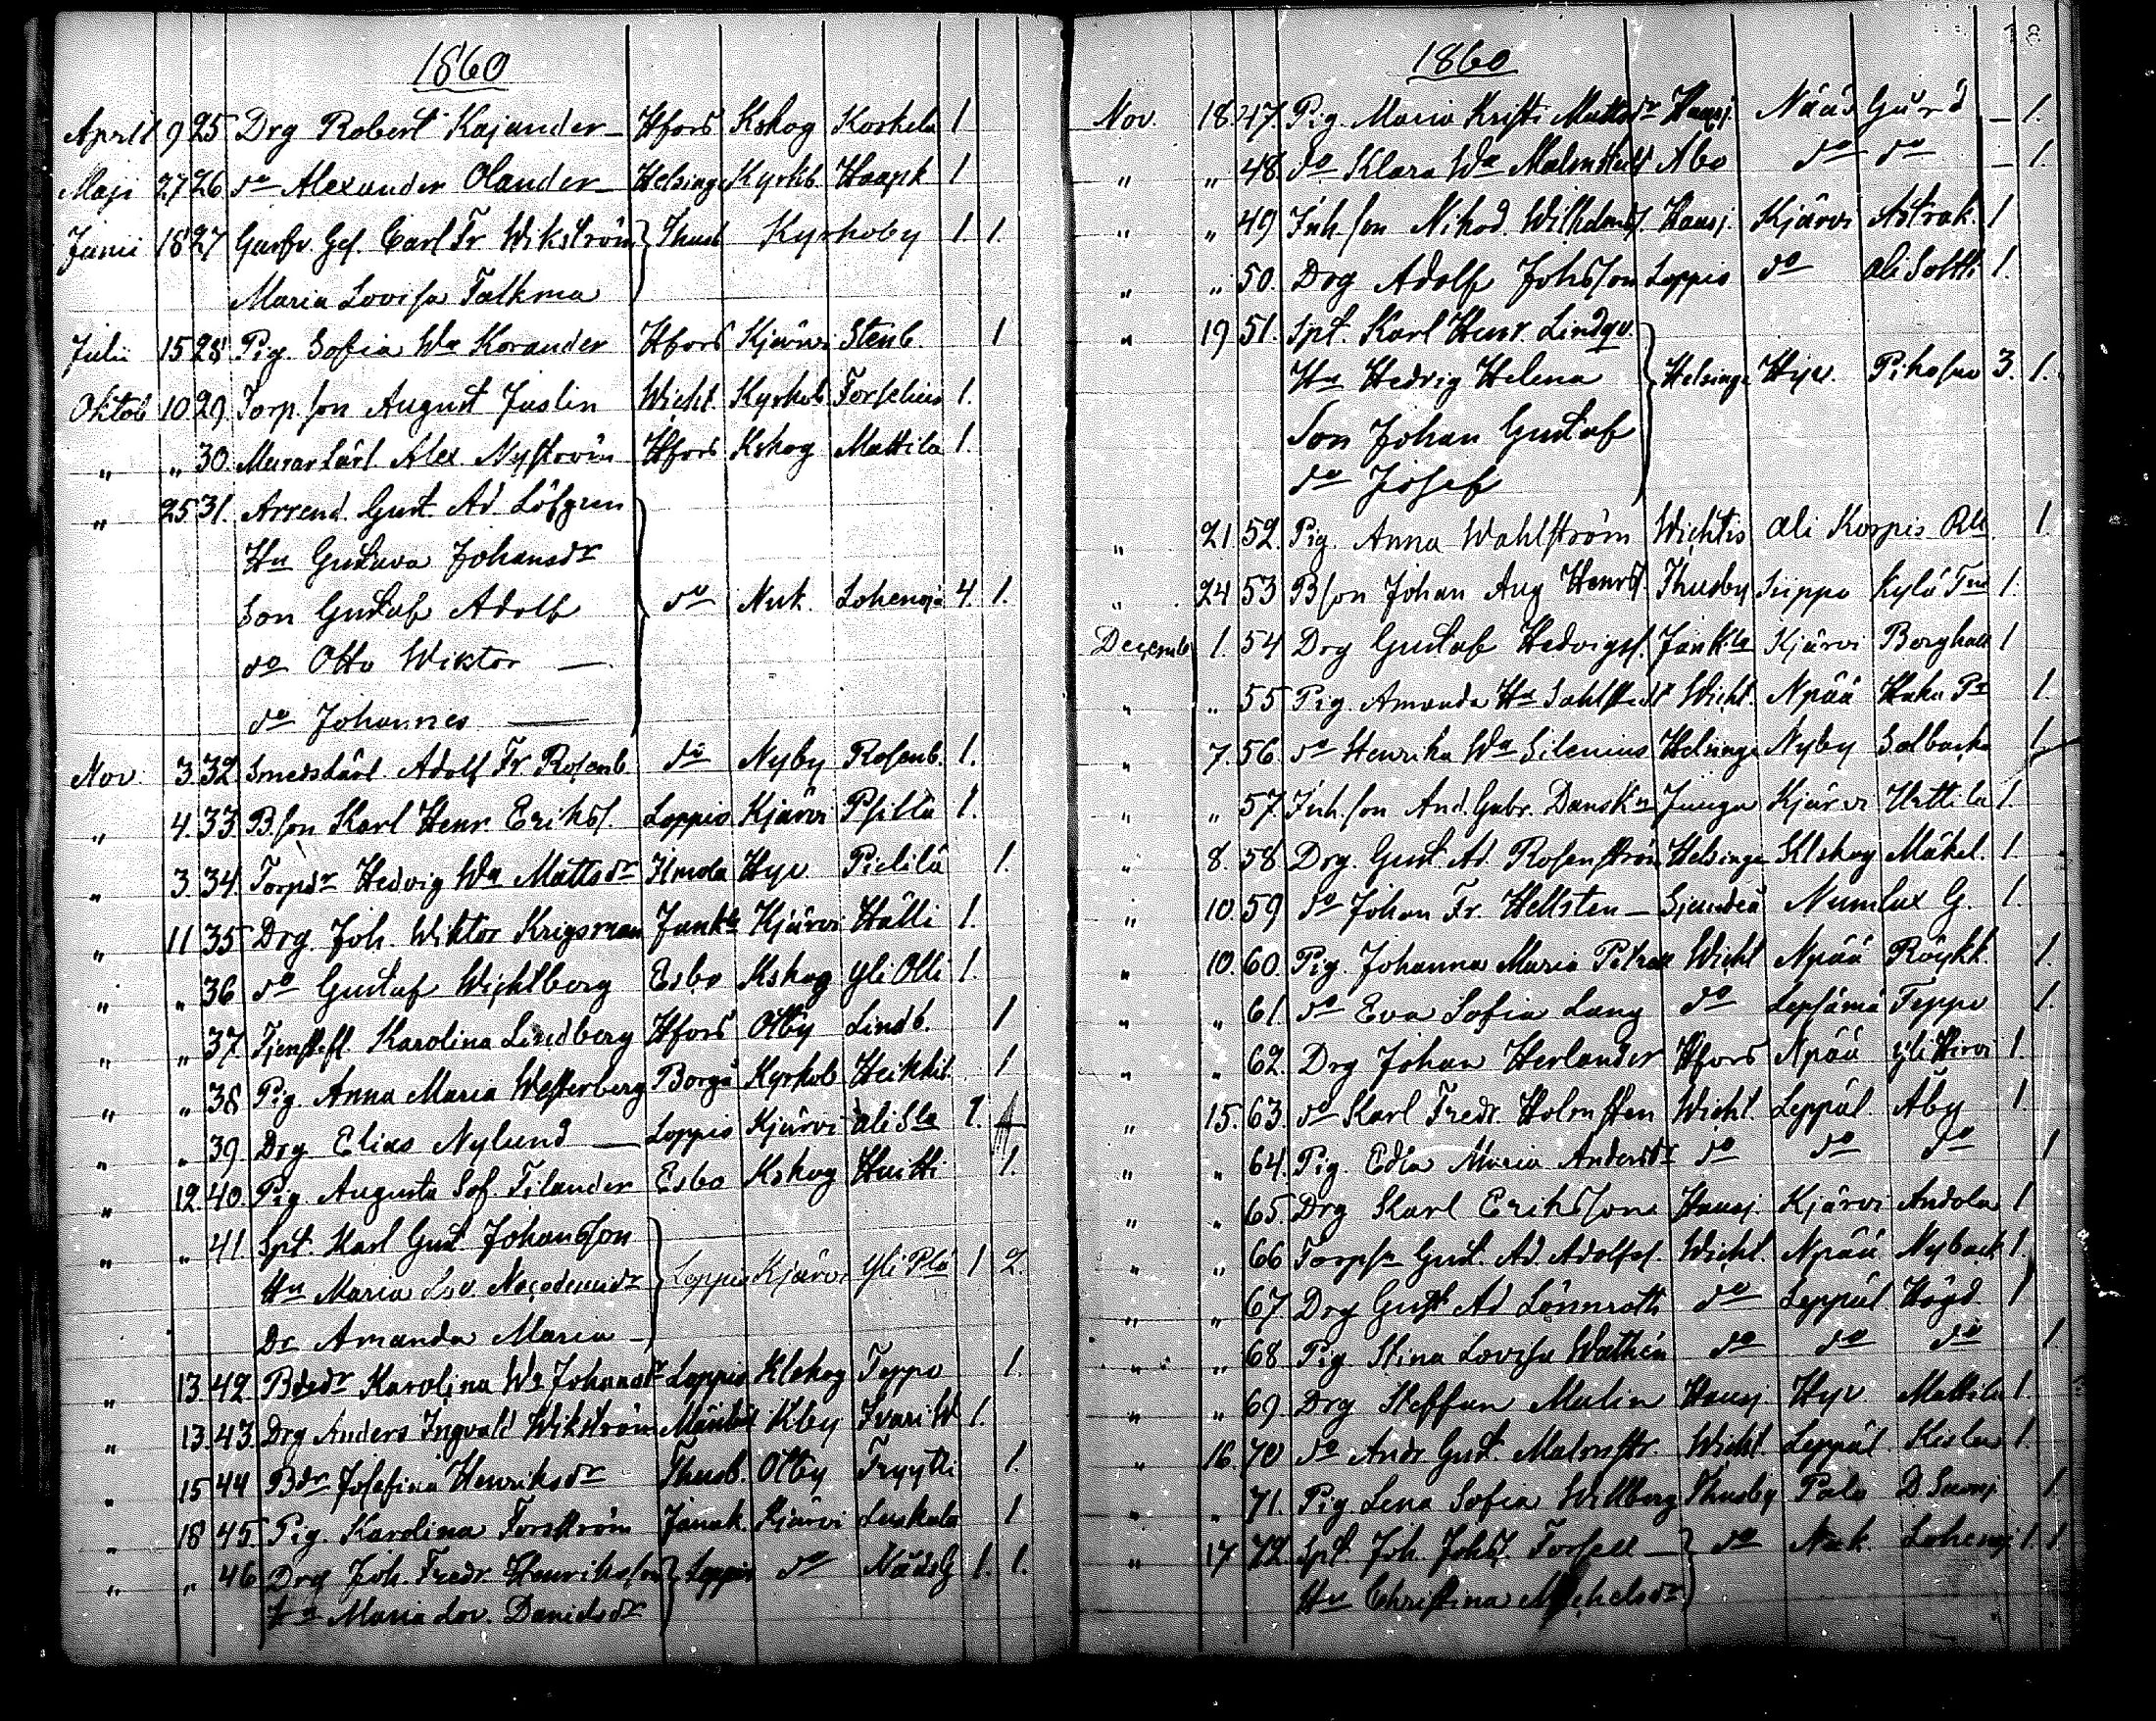 1860
April 9 25 Drg Robert Kajander Hfors Kskog Koskela 1
Maji 27 26 do Alexander Olander Helsinge Kyrkb Haapk 1
Junii 18 27 Garfv. Ges. Carl Fr Wikström Thusb Kyrkoby 1. 1.
Maria Lovisa Falkma
Julii 15 28 Pig. Sofia Wa Korander Hfors Kjärvi Stenb. 1
Oktob 10 29 Torp.son August Juslin Wicht. Kyrkob Forselius 1.
" " 30 Murar lärl Alex Nyström Hfors Kskog Mattila 1.
" 25 31. Arrend. Gust. Ad. Löfgren
Hu Gustava Johansdr
Son Gustaf Adolf do Nuk. Lohenoja 4. 1.
do Otto Wiktor
do Johannes
Nov. 3. 32 Smedslärl. Adolf Fr. Rosenb. do Nyby Rosenb. 1.
" 4. 33. B.son Karl Henr. Eriks. Loppis Kjärvi 1.
" 3. 34. Torpdr Hedvig Wa Mattsdr Hyv Pietilä 1.
" 11 35 Drg. Joh. Wiktor Krigsman Jankla Kjärvi Hälli 1.
" " 36 do Gustaf Wichtberg Esbo Kskog Yli Olli 1.
" " 37. Tjenstefl. Karolina Lindberg Hfors Olby Lindb. 1
" " 38 Pig. Anna Maria Westerberg Borgå Kyrkob Heikkil. 1
" " 39. Drg Elias Nylund Loppis Kjärvi Ali Sla 1.
" 12. 40. Pig. Augusta Sof. Tilander Esbo Kskog Huitti 1.
" " 41 Spt. Karl Gust Johansson
Hu Maria Lov. Nicodemidr Loppis Kjärvi Yli 1 2.
Dr Amanda Maria
" 13. 42. Bdr Karolina Wa Johansdr Loppis Klskog Teppo 1.
" 13. 43. Drg Anders Ingvald Wikström Kby 1.
" 15 44 Bdr Josefina Henriksdr Thusb. Olby Fryytti 1.
" 18 45. Pig. Karolina Forsström Janak. Kjärvi Luskala 1
" " 46 Drg Joh. Fredr. Henriksson Loppis do Näds G 1. 1.
Maria Lov. Danielsdr
1860
Nov. 18. 47. Pig. Maria Kristi Mattsdr Hausj. Nääs Gård 1.
" " 48. do Klara Wa Malmstedt Åbo do do 1.
" " 49. Inh.son Nikod. Wilhelms. Hausj. Kjärvi Astrak. 1
" " 50. Drg Adolf Johsson Loppis do Ali Soltti 1.
" 19 51. Spt. Karl Henr. Lindqv.
Hu Hedvig Helena Helsinge Hyv. 3. 1.
Son Johan Gustaf
do Josef
" 21. 52. Pig. Anna Wahlström Wichtis Ali Korpis 1.
" 24 53 B.son Johan Aug Henrs. Thusby Siippo Kylä 1.
Decemb. 1. 54 Drg Gustaf Hedvigs. Jankla Kjärvi Berghall 1
" " 55 Pig. Amanda Ha Sahlstedt Wicht. Npää Haka 1.
" 7. 56. do Henrika Wa Silenius Helsinge Nyby Salbacka 1
" " 57. Inh.son And. Gabr. Kjärvi Uttila 1.
" 8. 58 Drg. Gust. Ad. Rosenström Helsinge Klskog Mäkel. 1.
" 10 59 do Johan Fr. Hellsten Sjundeå Numlax G. 1.
" 10. 60. Pig. Johanna Maria Petrell Wicht Npää Röykk. 1.
" " 61. do Eva Sofia Lang do Lepsämä Teppo 1.
" " 62. Drg Johan Herlander Hfors Npää Yli Hirvi 1.
" 15. 63. do Karl Fredr. Holmsten Wicht. Leppäl. Åby 1.
" " 64. Pig. Edla Maria Andersdr do do do 1
" " 65. Drg Karl Eriksson Hausj. Kjärvi Andola 1
" " 66 Torpsn Gust. Ad. Adolfss. Wicht. Npää Nyback. 1.
" " 67. Drg Gust. Ad Lönnroth do Leppäl Högd. 1
" " 68 Pig Stina Lovisa Wathén do do do 1
" " 69. Drg Steffan Malin Hausj. Hyv Mattila 1.
" 16. 70 do Andr Gust. Malmstr. Wicht. Leppäl. Kislas 1.
" " 71. Pig Lena Sofia Willberg Thusby Palo 1
" 17 72. Spt. Joh. Johss. Forsell do Nuk. Lohenoj. 1. 1.
Hu Christina Michelsdr